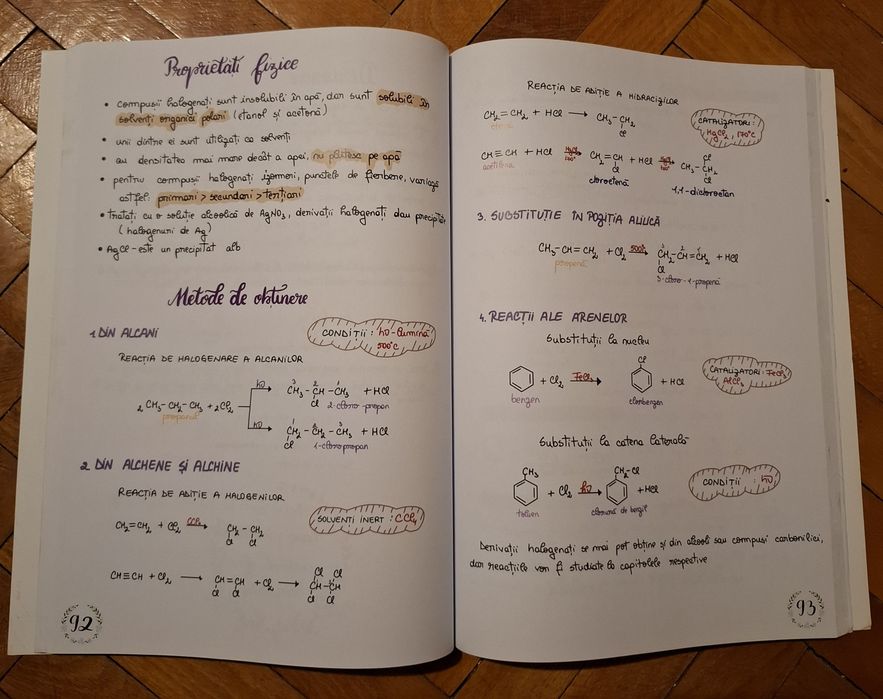 Proprietăți fizice
• compușii halogenați sunt insolubili în apă, dar sunt solubili în
solvenți organici polari (etanol și acetonă)
• unii dintre ei sunt utilizați ca solvenți
• au densitatea mai mare decât a apei, nu plutesc pe apă
• pentru compuși halogenați izomeri, punctele de fierbere, variază
astfel: primari > secundari > terțiari
• tratați cu o soluție alcoolică de AgNO₃, derivații halogenați dau precipitate
(halogenuri de Ag)
• AgCl - este un precipitat alb
Metode de obținere
1. DIN ALCANI
CONDIȚII: hν - lumină
500°C
REACȚIA DE HALOGENARE A ALCANILOR
2 CH₃-CH₂-CH₃ + 2Cl₂
propanul
hν
³CH₃-²CH-¹CH₃ + HCl
Cl
2-cloro-propan
hν
¹CH₂-²CH₂-³CH₃ + HCl
Cl
1-cloropropan
2. DIN ALCHENE ȘI ALCHINE
REACȚIA DE ADIȚIE A HALOGENILOR
SOLVENȚI INERT: CCl₄
CH₂=CH₂ + Cl₂ CCl₄→ CH₂-CH₂
Cl Cl
CH≡CH + Cl₂ → CH=CH + Cl₂ → CH-CH
Cl Cl
Cl Cl
Cl Cl
92
REACȚIA DE ADIȚIE A HIDRACIZILOR
CH₂=CH₂ + HCl → CH₃-CH₂
etena
Cl
CATALIZATORI:
HgCl₂, 170°C
CH≡CH + HCl HgCl₂→ CH₂=CH + HCl → CH₃-CH₂
acetilena
Cl
Cl
Cl
cloroetenă
1,1-dicloroetan
3. SUBSTITUȚIE ÎN POZIȚIA ALILICĂ
CH₃-CH=CH₂ + Cl₂ 500°→ ³CH₂-²CH=¹CH₂ + HCl
propenă
Cl
3-cloro-1-propenă
4. REACȚII ALE ARENELOR
Substituții la nucleu
+ Cl₂ FeCl₃→ + HCl
Cl
benzen
clorbenzen
CATALIZATORI: FeCl₃
AlCl₃
Substituții la catena laterală
CH₃
CH₂-Cl
+ Cl₂ hν→ + HCl
toluen
clorură de benzil
CONDIȚII : hν
Derivații halogenați se mai pot obține și din alcooli sau compuși carbonilici,
dar reacțiile vor fi studiate la capitolele respective
93